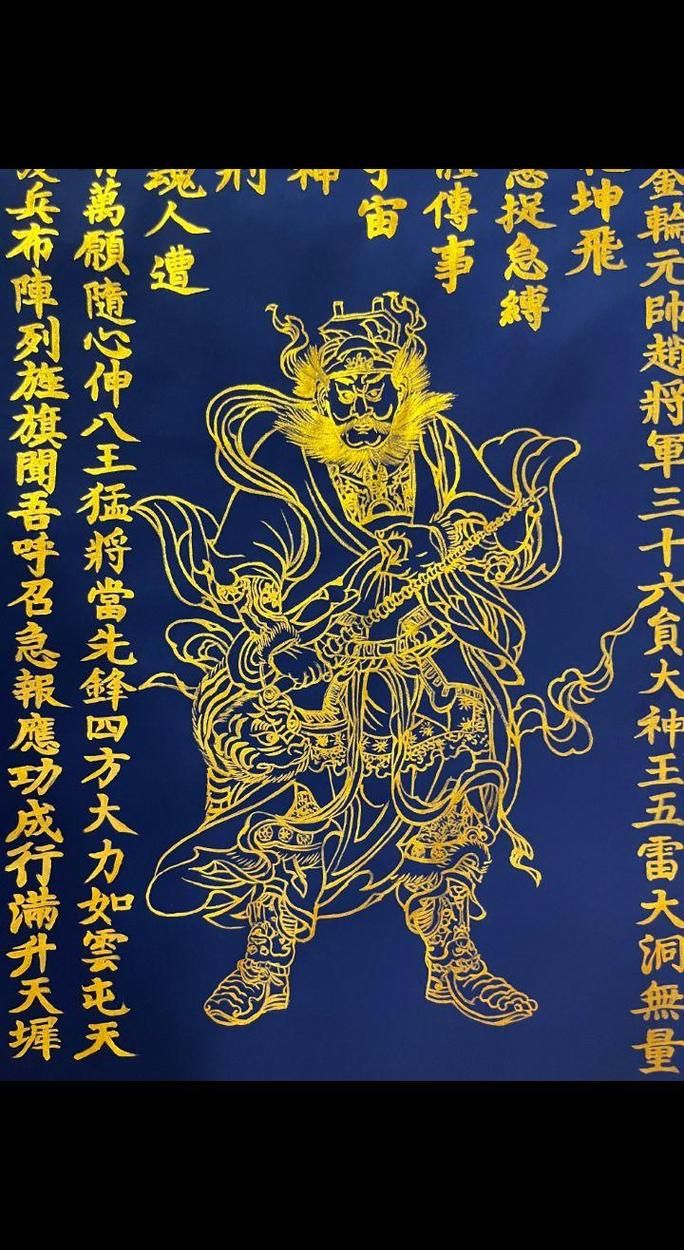 金輪元帥趙將軍三十六員大神王五雷大洞無量
坤飛
捉急縛
傳事
宙
神
刑
魂人遭
萬願隨心伸八王猛將當先鋒四方大力如雲屯天
兵布陣列旌旗聞吾呼召急報應功成行滿升天墀